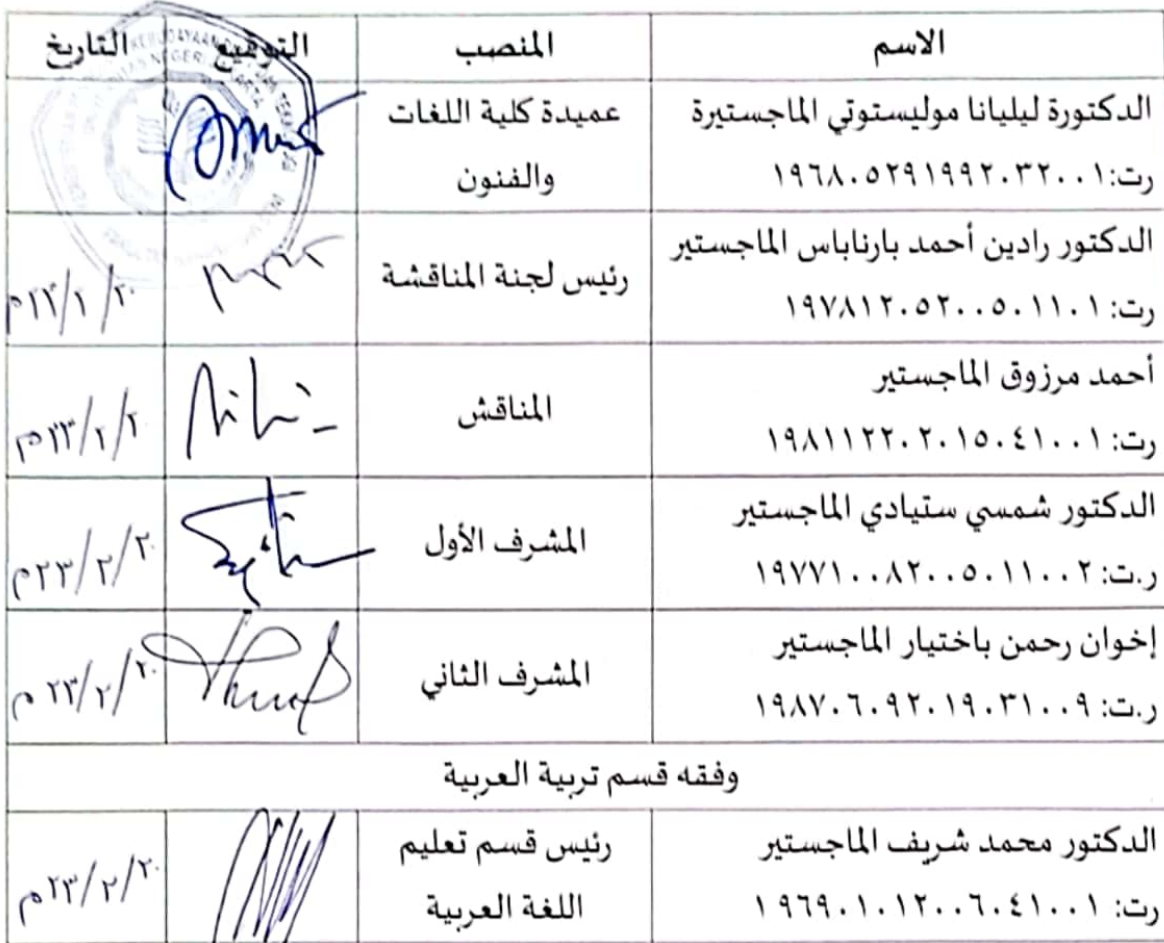 الاسم المنصب التوقيع التاريخ
الدكتورة ليليانا موليستوتي الماجستيرة عميدة كلية اللغات
رت:١٩٦٨٠٥٢٩١٩٩٢٠٣٢٠٠١ والفنون
الدكتور رادين أحمد بارناباس الماجستير
رت:١٩٧٨١٢٠٥٢٠٠٥٠١١٠١ رئيس لجنة المناقشة
أحمد مرزوق الماجستير
رت:١٩٨١١٢٢٠٢٠١٥٠٤١٠٠١ المناقش ٢٠/٢/٢٣م
الدكتور شمسي ستيادي الماجستير
ر.ت:١٩٧٧١٠٠٨٢٠٠٥٠١١٠٠٢ المشرف الأول ٢٠/٢/٢٣م
إخوان رحمن باختيار الماجستير
ر.ت:١٩٨٧٠٦٠٩٢٠١٩٠٣١٠٠٩ المشرف الثاني ٢٠/٢/٢٣م
وفقه قسم تربية العربية
الدكتور محمد شريف الماجستير رئيس قسم تعليم
رت:١٩٦٩٠١٠١٢٠٠٦٠٤١٠٠١ اللغة العربية ٢٠/٢/٢٣م